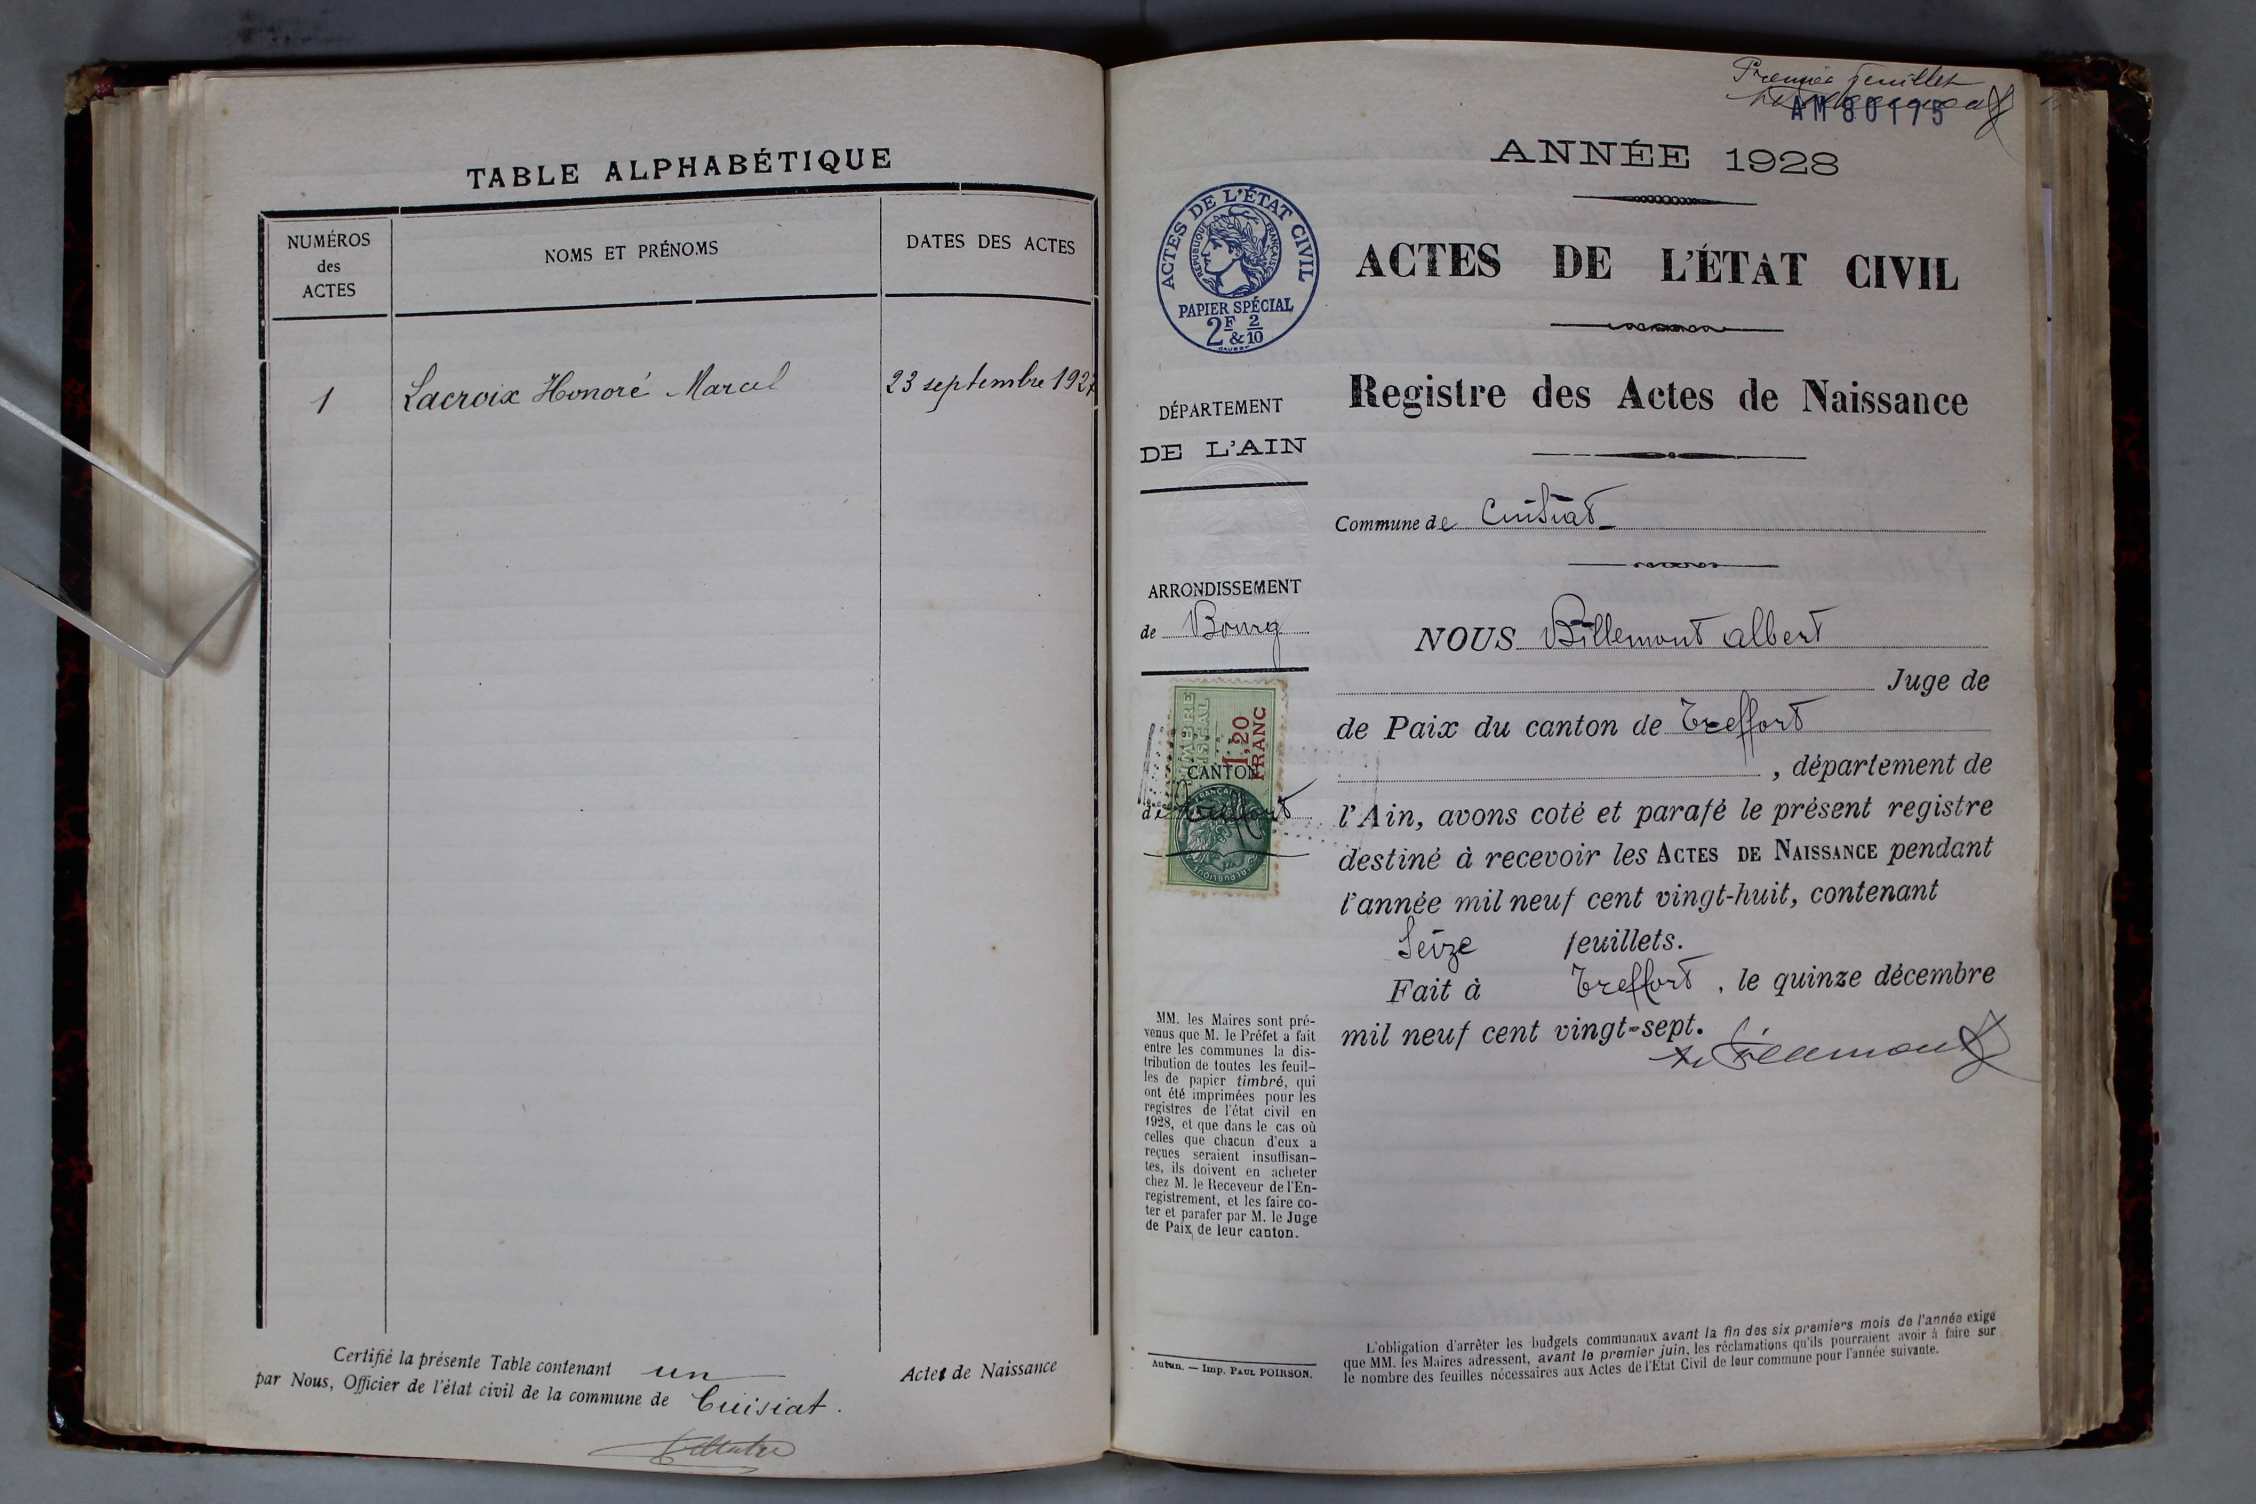 TABLE ALPHABÉTIQUE
NUMÉROS
des
ACTES
NOMS ET PRÉNOMS
DATES DES ACTES
1
Lacroix Honoré Marcel
23 septembre 1927
Certifié la présente Table contenant un Actes de Naissance
par Nous, Officier de l'état civil de la commune de Cuisiat.
Premier feuillet
AM 80175
ANNÉE 1928
ACTES DE L'ÉTAT CIVIL
RÉPUBLIQUE FRANÇAISE
PAPIER SPÉCIAL
2F & 2/10
ACTES DE L'ÉTAT CIVIL
Registre des Actes de Naissance
DÉPARTEMENT
DE L'AIN
Commune de Cuisiat
ARRONDISSEMENT
de Bourg
TIMBRE
FISCAL
1,20
FRANC
CANTON
de Treffort
NOUS Billemont Albert
Juge de
de Paix du canton de Treffort
, département de
l'Ain, avons coté et parafé le présent registre
destiné à recevoir les ACTES DE NAISSANCE pendant
l'année mil neuf cent vingt-huit, contenant
Seize feuillets.
Fait à Treffort, le quinze décembre
mil neuf cent vingt-sept.
MM. les Maires sont pré-
venus que M. le Préfet a fait
entre les communes la dis-
tribution de toutes les feuil-
les de papier timbré, qui
ont été imprimées pour les
registres de l'état civil en
1928, et que dans le cas où
celles que chacun d'eux a
reçues seraient insuffisan-
tes, ils doivent en acheter
chez M. le Receveur de l'En-
registrement, et les faire co-
ter et parafer par M. le Juge
de Paix de leur canton.
Autun. — Imp. PAUL POIRSON.
L'obligation d'arrêter les budgets communaux avant la fin des six premiers mois de l'année exige
que MM. les Maires adressent, avant le premier juin, les réclamations qu'ils pourraient avoir à faire sur
le nombre des feuilles nécessaires aux Actes de l'État Civil de leur commune pour l'année suivante.